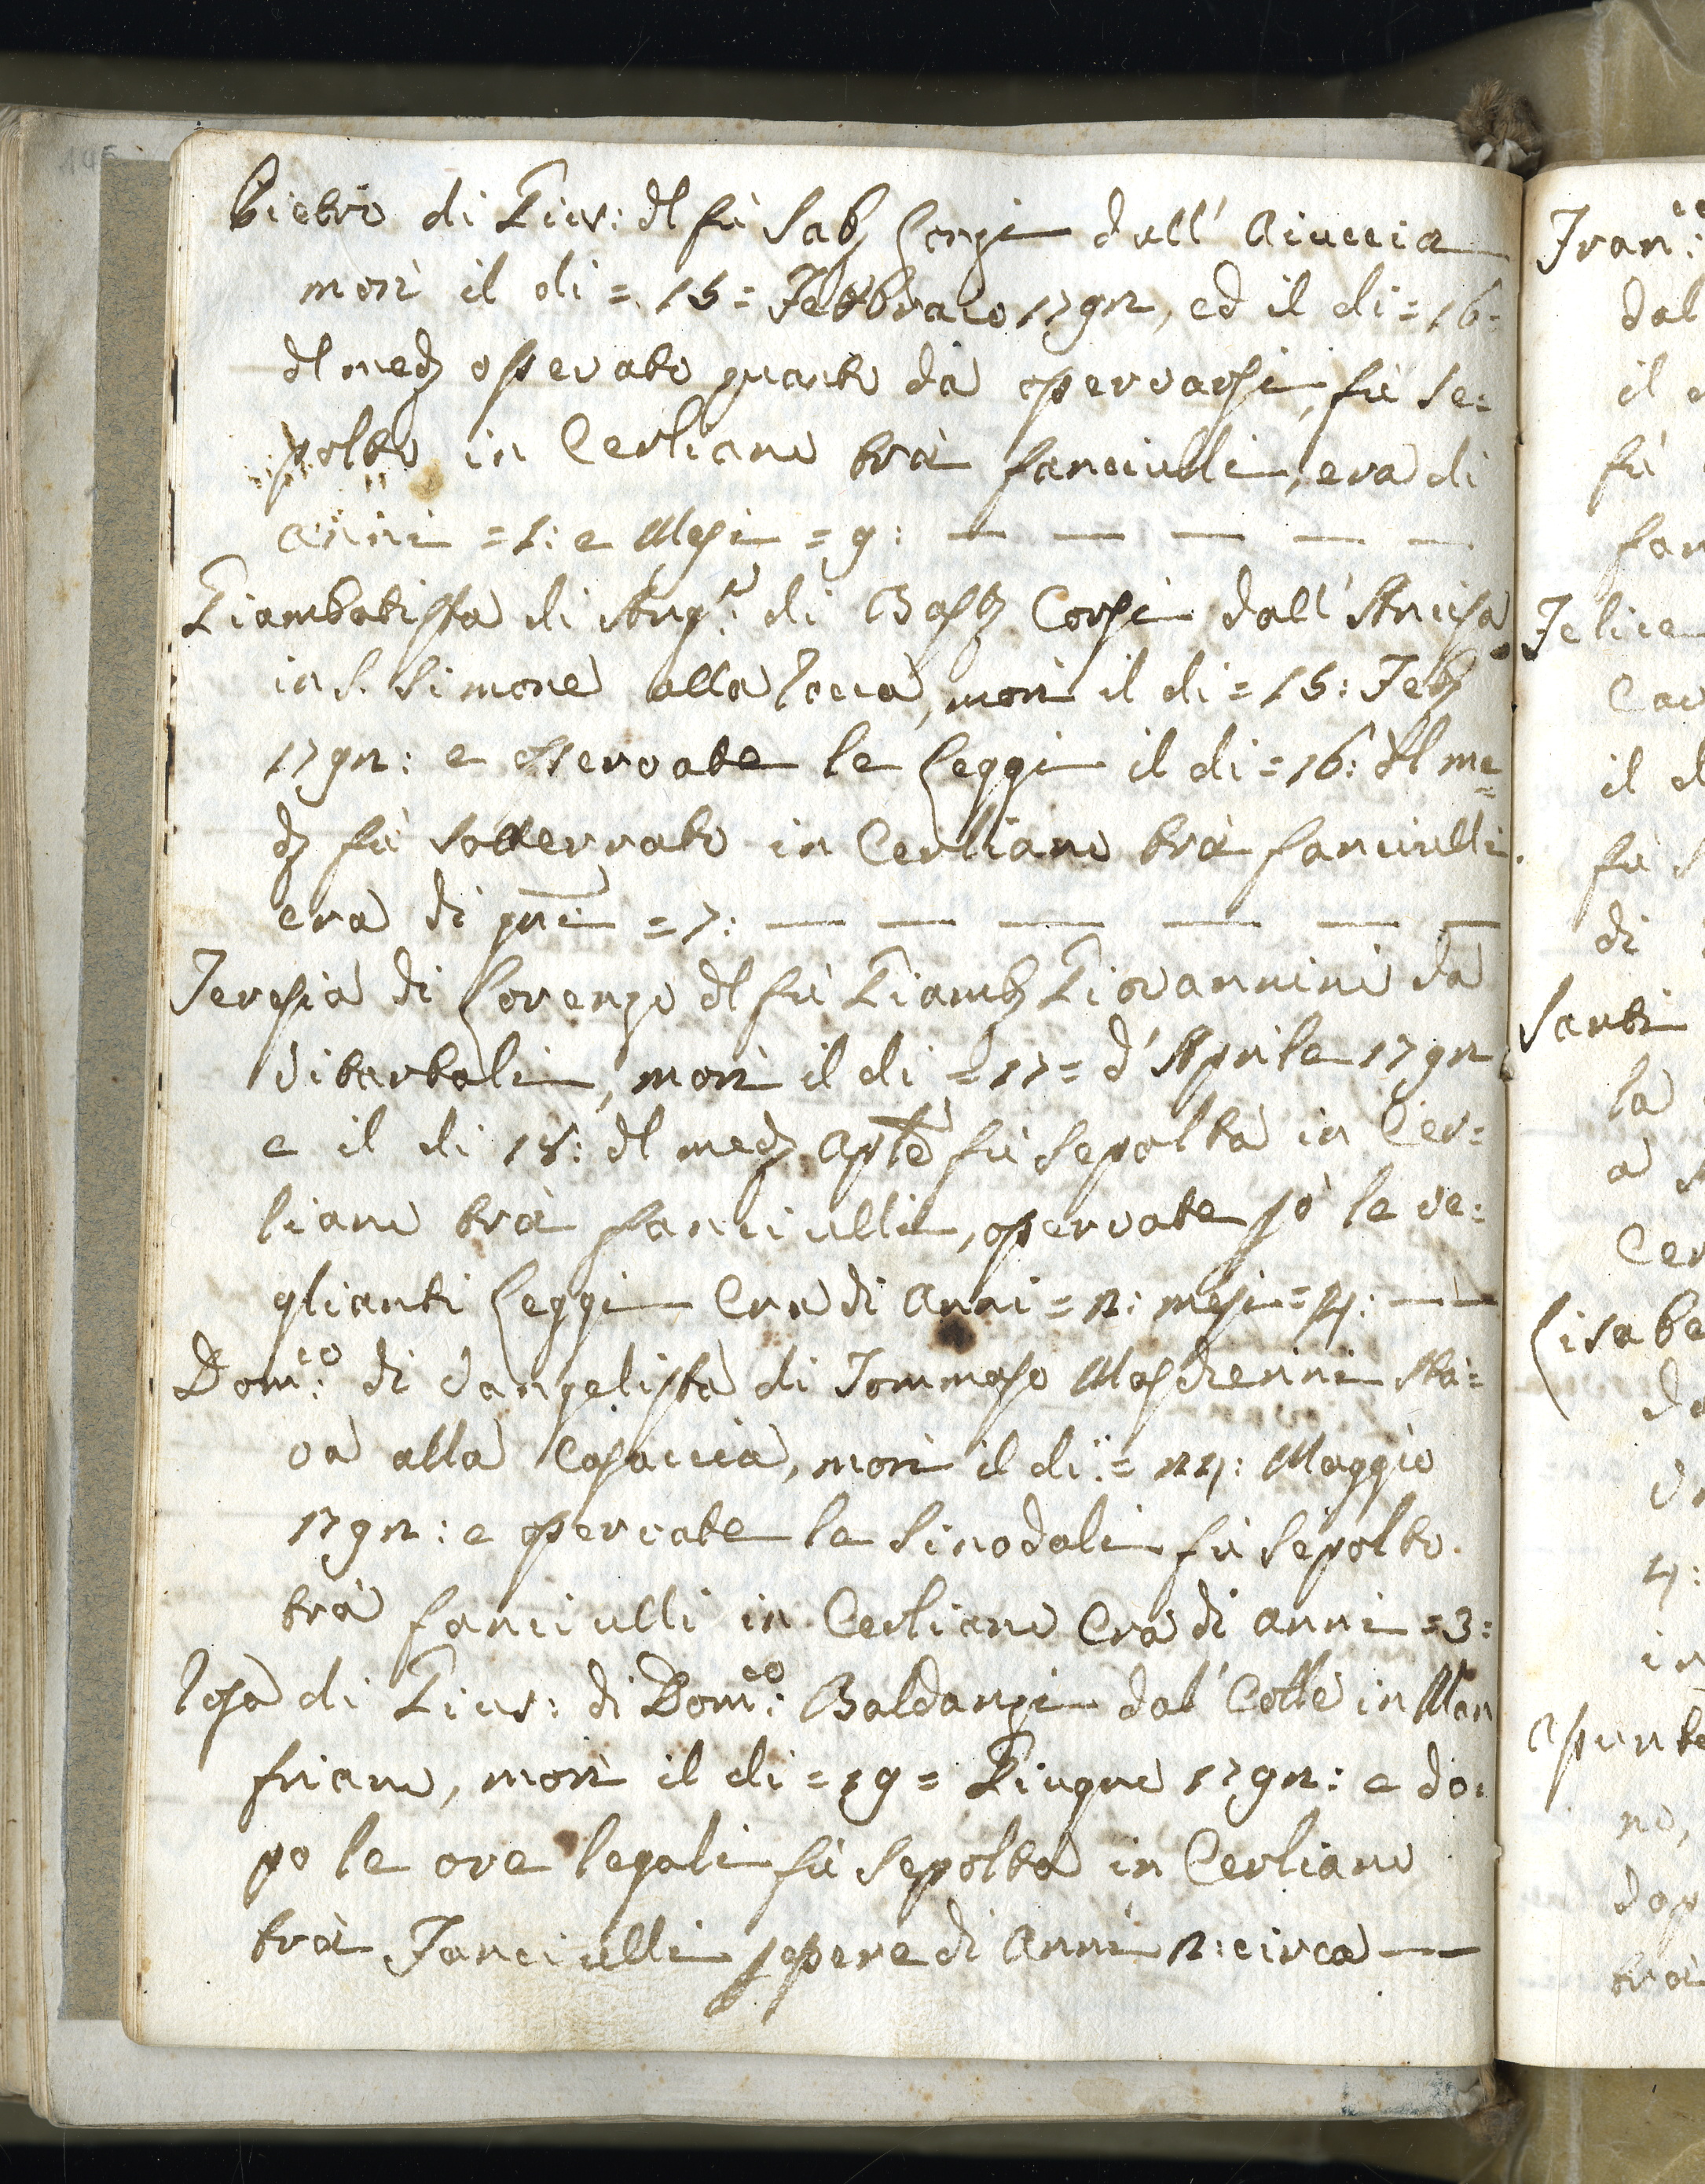 Pietro di Gius: dl fù Sab. Corzi dall' Aiaccia
morì il dì = 15 = Febbraio 1792, ed il dì = 16 =
dl med. osservato quanto da osservarsi, fù se=
polto in Cerliano trà fanciulli, era di
anni = 1: e Mesi = 9:
Giambatista di Ang.o di Bast. Corsi dall' Ancisa
in S. Simone alla Rocca, morì il dì = 15: Feb.
1792: e osservate le Leggi il dì = 16: dl me=
d. fù sotterrato in Cerliano trà fanciulli.
era di gni = 7:
Teresia di Lorenzo dl fù Giamb. Giovannini da
Vitartali, morì il dì = 17 = d' Aprile 1792
e il dì 18: dl med. Aple fù sepolta in Cer=
liano trà fanciulli, osservate pò le ve=
glianti Leggi Era di Anni = 2: mesi = 4:
Dom.co di Vangelista di Tommaso Mascherini sta=
va alla Casaccia, morì il dì = 24: Maggio
1792: e osservate le Sinodali fù sepolto
trà fanciulli in Cerliano Era di anni = 3:
Rosa di Gius: di Dom.co Baldanzi dal Colle in Man
friano, morì il dì = 19 = Giugno 1792: e do=
po le ore legali fù sepolta in Cerliano
trà Fanciulli p essere di Anni 2: circa
Fran:
dal
il
fù
fan
Felice
Cav
il d
fù S
di
Santi
la
a
Cer
Lisabe
da
4:
in
Assunta
no,
dop
trà